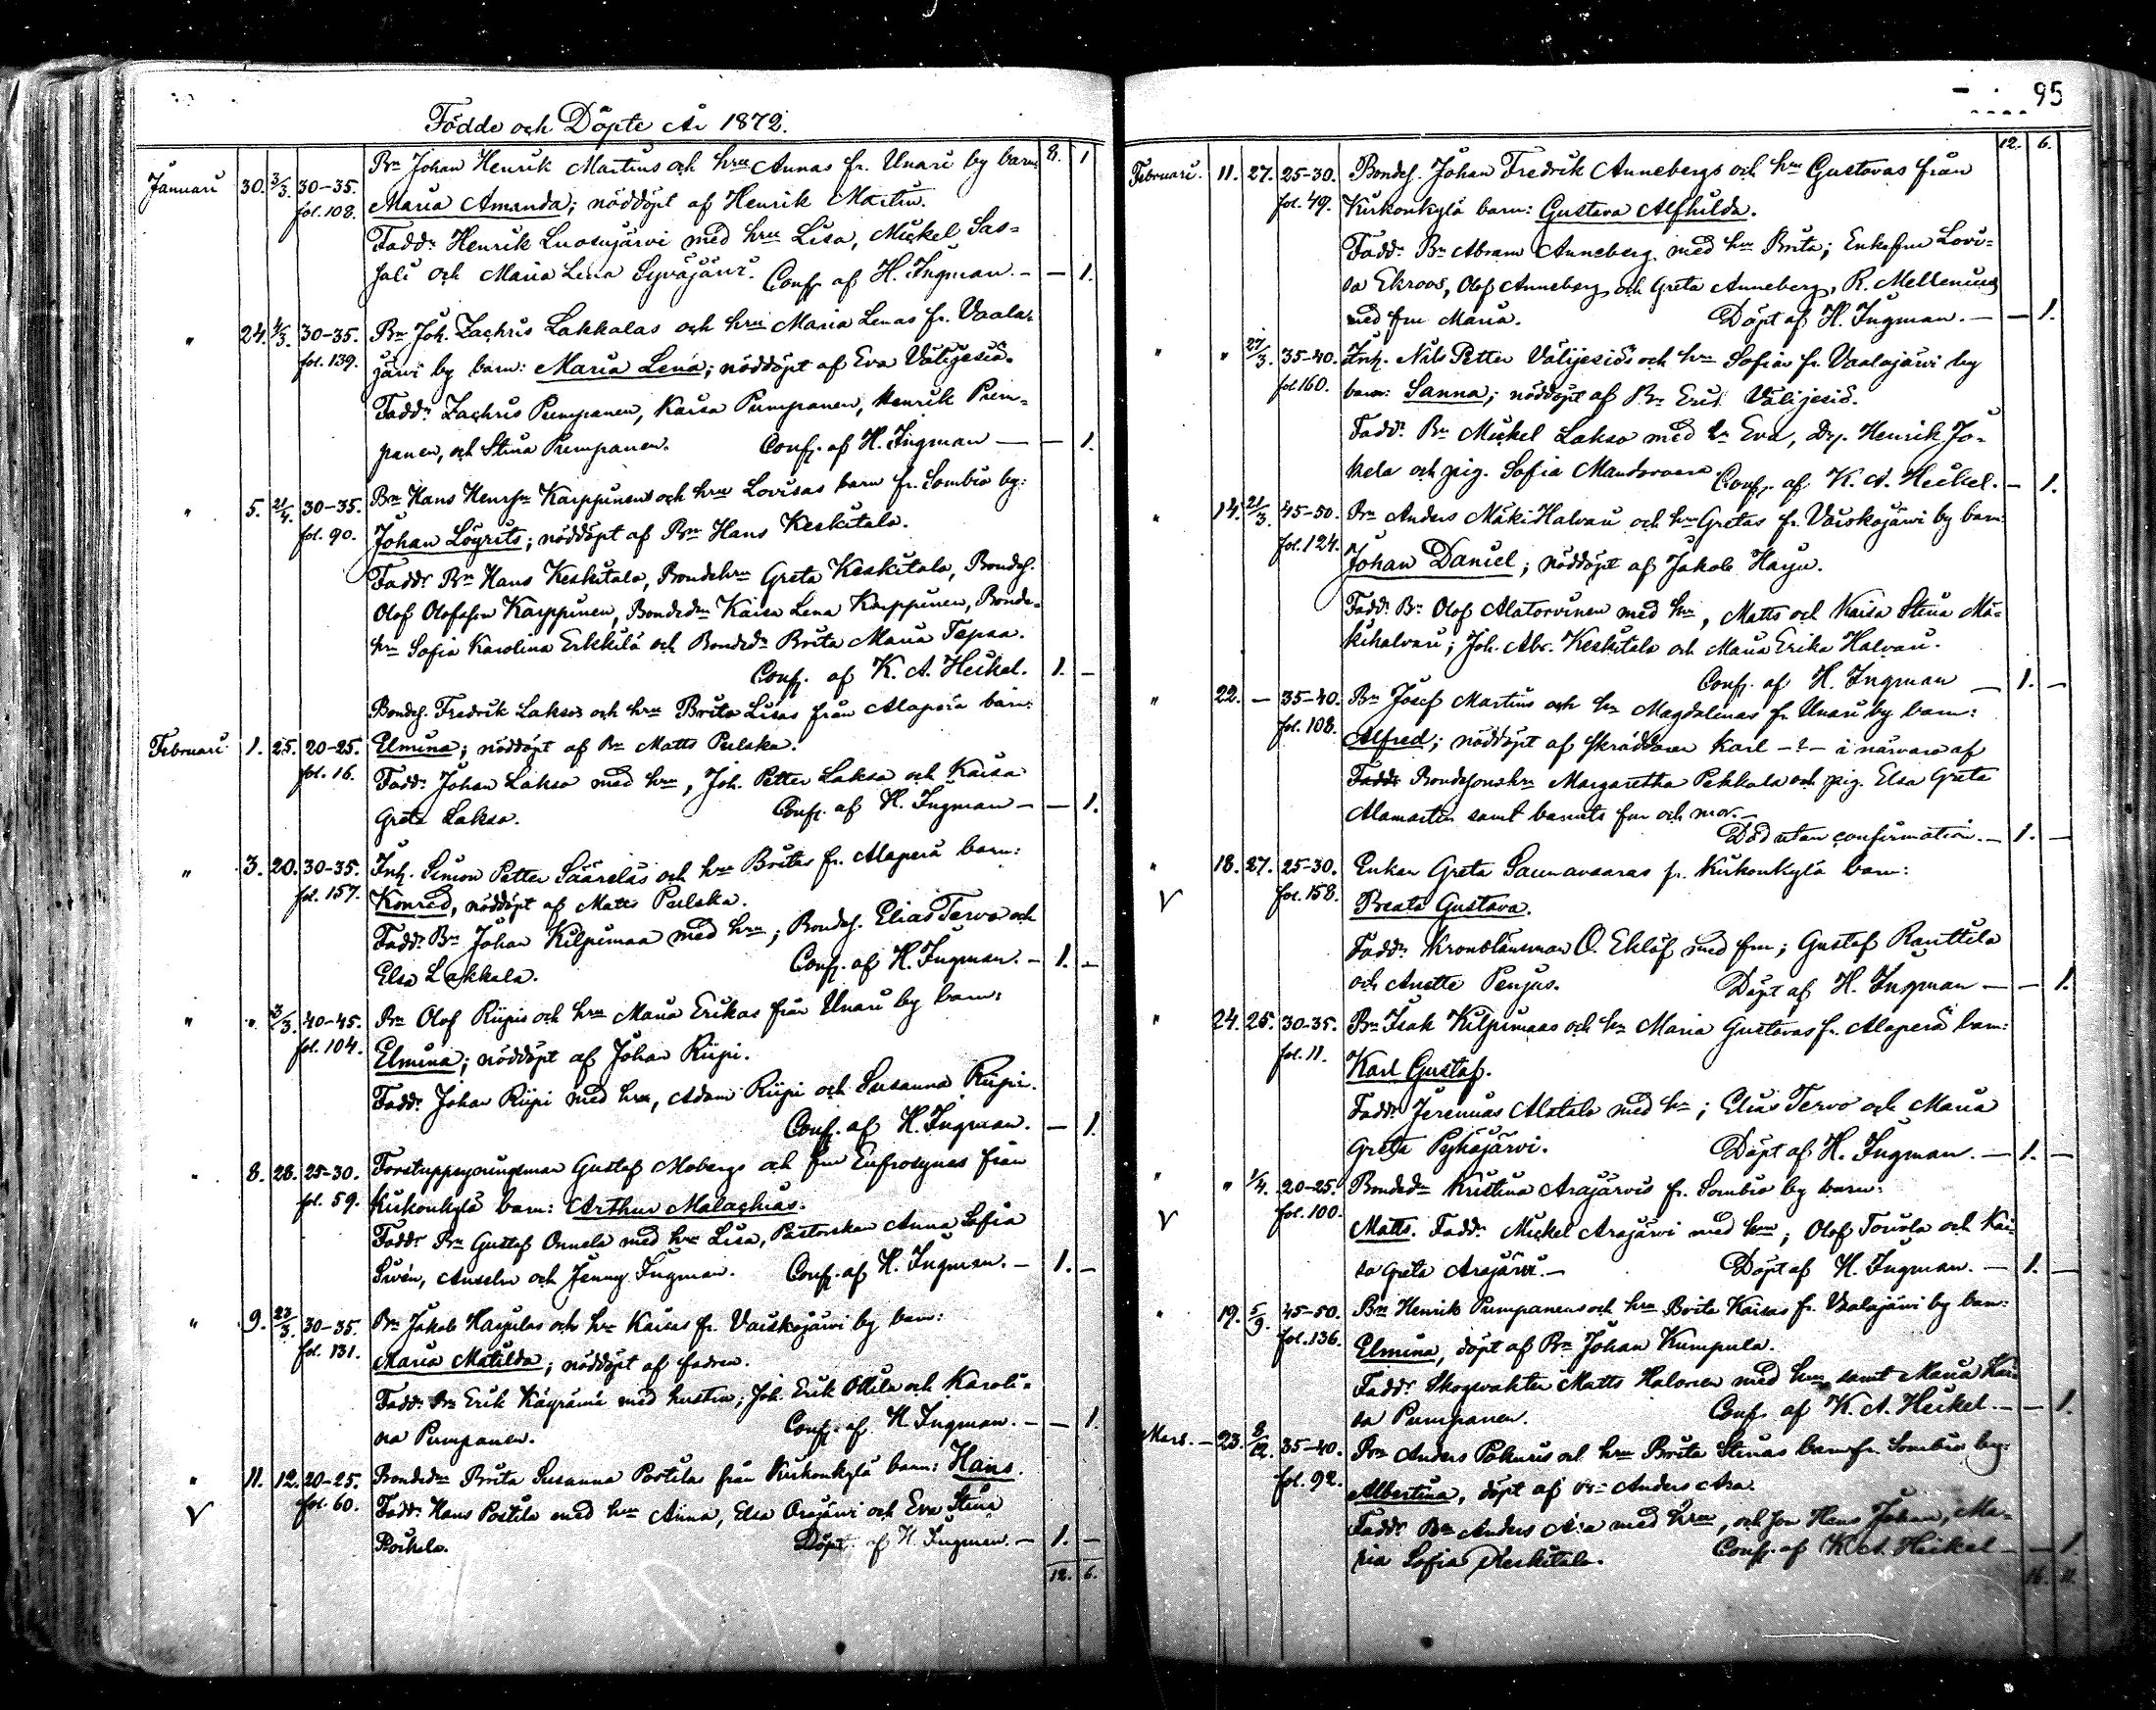 Födde och Döpte År 1872.
8. 1
Januari 30. 3/3. 30-35. Bn Johan Henrik Martins och hru Annas fr. Unari by barn:
fol. 108. Maria Amanda; nöddöpt af Henrik Martin.
Fadd: Henrik Luosujärvi med hru Lisa, Mickel Sas=
sali och Maria Lena Syväjärvi. Conf. af H. Ingman. — — 1.
" 24. 1/3. 30-35. Bn Joh. Zachris Lakkalas och hru Maria Lenas fr. Vaala-
fol. 139. järvi by barn: Maria Lena; nöddöpt af Eva Välijesiö.
Fadd: Zachris Pumpanen, Kaisa Pumpanen, Henrik Pum-
panen, och Stina Pumpanen. Conf. af H. Ingman — — 1.
" 5. 21/4. 30-35. Bn Hans Henrson Karppinens och hru Lovisas barn fr. Sombio by:
fol. 90. Johan Löyrits; nöddöpt af Bn Hans Keskitalo.
Fadd: Bn Hans Keskitalo, Bondehru Greta Keskitalo, Bondes.
Olof Olofsson Karppinen, Bondedn Kaisa Lena Karppinen, Bonde-
hru Sofia Karolina Erkkilä och Bondedn Brita Maria Tepsa.
Conf. af K. A. Heikel. 1. —
Bondes. Fredrik Laksos och hru Brita Lisas från Alaperä barn:
Februari 1. 25. 20-25. Elmina; nöddöpt af Bn Matts Peilska.
fol. 16. Fadd: Johan Lakso med hru, Joh. Petter Lakso och Kaisa
Greta Lakso. Conf. af H. Ingman — — 1.
" 3. 20. 30-35. Inh. Simon Petter Säärelas och hru Britas fr. Alaperä barn:
fol. 157. Konrad, nöddöpt af Matts Peilska.
Fadd: Bn Johan Kilpimaa med hru; Bondes. Elias Tervo och
Elsa Lakkala. Conf. af H. Ingman. — 1. —
" " 3/3. 40-45. Bn Olof Riipis och hru Maria Erikas från Unari by barn:
fol. 104. Elmina; nöddöpt af Johan Riipi.
Fadd: Johan Riipi med hru, Adam Riipi och Susanna Riipi.
Conf. af H. Ingman. — 1.
" 8. 28. 25-30. Forstuppsyningsman Gustaf Mobergs och fru Eufrosynes från
fol. 59. Kirkonkylä barn: Arthur Malachias.
Fadd: Bn Gustaf Onnela med hru Lisa, Pastorskan Anna Sofia
Sivén, Anselm och Jenny Ingman. Conf. af H. Ingman. — 1. —
" 9. 23/3. 30-35. Bn Jakob Harjulas och hru Kaisas fr. Vaiskojärvi by barn:
fol. 131. Maria Matilda; nöddöpt af fadren.
Fadd: Bn Erik Käyrämä med hustru; Joh. Erik Ollila och Karoli-
na Pumpanen. Conf. af H. Ingman. — — 1.
" 11. 12. 20-25. Bondedn Brita Susanna Postilas från Kirkonkylä barn: Hans.
V fol. 60. Fadd: Hans Postila med hru Anna, Elsa Orajärvi och Eva Stina
Poikela. Döpt af H. Ingman. — 1. —
12. 6.
95
12. 6.
Februari. 11. 27. 25-30. Bondes. Johan Fredrik Annebergs och hru Gustavas från
fol. 49. Kirkonkylä barn: Gustava Alfhilda.
Fadd: Bn Abram Anneberg med hru Brita; Enkefru Lovi-
sa Ekroos, Olof Anneberg och Greta Anneberg, R. Mellenius
med fru Maria. Döpt af H. Ingman. — — 1.
" " 27/3. 35-40. Inh. Nils Petter Välijesiös och hru Sofias fr. Vaalajärvi by
fol. 160. barn: Sanna; nöddöpt af Bn Erik Välijesiö.
Fadd: Bn Mickel Lakso med hn Eva, Drg. Henrik Jo-
kela och pig. Sofia Mandorvara. Conf. af K. A. Heikel. — 1.
" 14. 21/3. 45-50. Bn Anders Mäki Halvari och hru Gretas fr. Vaiskojärvi by barn:
fol. 124. Johan Daniel; nöddöpt af Jakob Harju.
Fadd: Bn Olof Alatorvinen med hru, Matts och Kaisa Stina Mä-
kihalvari; Joh. Abr. Keskitalo och Maria Erika Halvari.
Conf. af H. Ingman — 1. —
" 22. — 35-40. Bn Josef Martins och hn Magdalenas fr. Unari by barn:
fol. 108. Alfred; nöddöpt af skräddaren Karl —?— i närvaro af
Fadd: Bondesonshru Margaretha Pekkala och pig. Elsa Greta
Alamartin samt barnets far och mor. —
Död utan confirmation. — 1. —
" 18. 27. 25-30. Enkan Greta Saunavaaras fr. Kirkonkylä barn:
V fol. 158. Beata Gustava.
Fadd: Kronolänsman O. Eklöf med fru; Gustaf Rauttila
och Anette Penjas. Döpt af H. Ingman — — 1.
" 24. 25. 30-35. Bn Isak Kilpimaas och hn Maria Gustavas fr. Alaperä barn:
fol. 11. Karl Gustaf.
Fadd: Jeremias Alatalo med hn; Elias Tervo och Maria
Greta Pyhäjärvi. Döpt af H. Ingman. — 1. —
" " 1/4. 20-25. Bondedn Kristina Arajärvis fr. Sombio by barn:
V fol. 100. Matts. Fadd: Mickel Arajärvi med hru; Olof Tourla och Kai-
sa Greta Arajärvi. — Döpt af H. Ingman. — 1. —
" 19. 5/9. 45-50. Bn Henrik Pumpanens och hru Brita Kaisas fr. Vaalajärvi by barn:
fol. 136. Elmina, döpt af Bn Johan Kumpula.
Fadd: Skogvaktar Matts Halonen med hru samt Maria Kai-
sa Pumpanen. Conf. af K. A. Heikel. — — 1.
Mars. — 23. 8/12. 35-40. Bn Anders Pokuris och hru Brita Stinas barn fr. Sombio by:
fol. 92. Albertina, döpt af Bn Anders Ara.
Fadd: Bn Anders Ara med hru, och son Hans Johan, Ma-
ria Sofia Keskitalo. Conf. af K. A. Heikel — — 1.
16. 11.